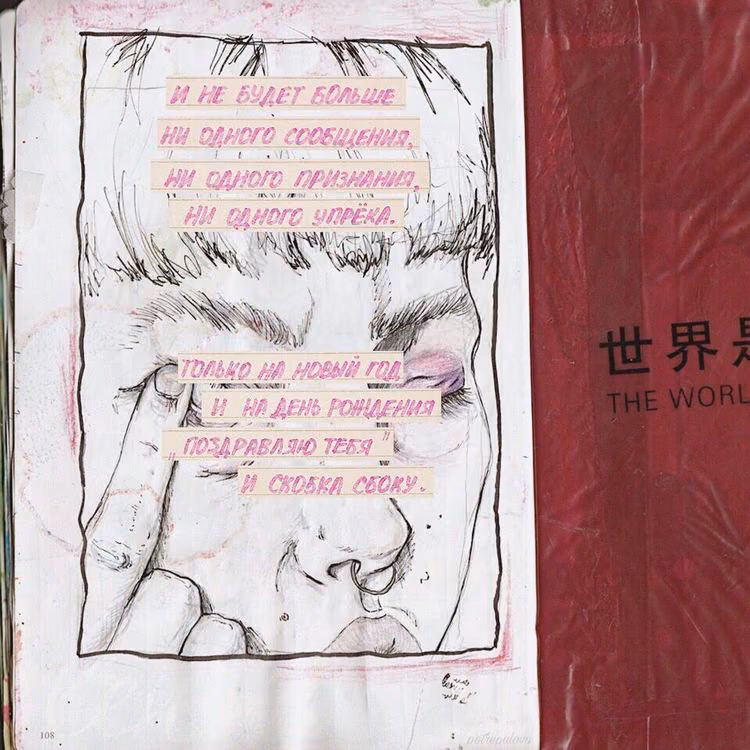 И НЕ БУДЕТ БОЛЬШЕ
НИ ОДНОГО СООБЩЕНИЯ,
НИ ОДНОГО ПРИЗНАНИЯ,
НИ ОДНОГО УПРЁКА.
ТОЛЬКО НА НОВЫЙ ГОД
И НА ДЕНЬ РОЖДЕНИЯ
„ПОЗДРАВЛЯЮ ТЕБЯ"
И СКОБКА СБОКУ.
世界是
THE WORL
108